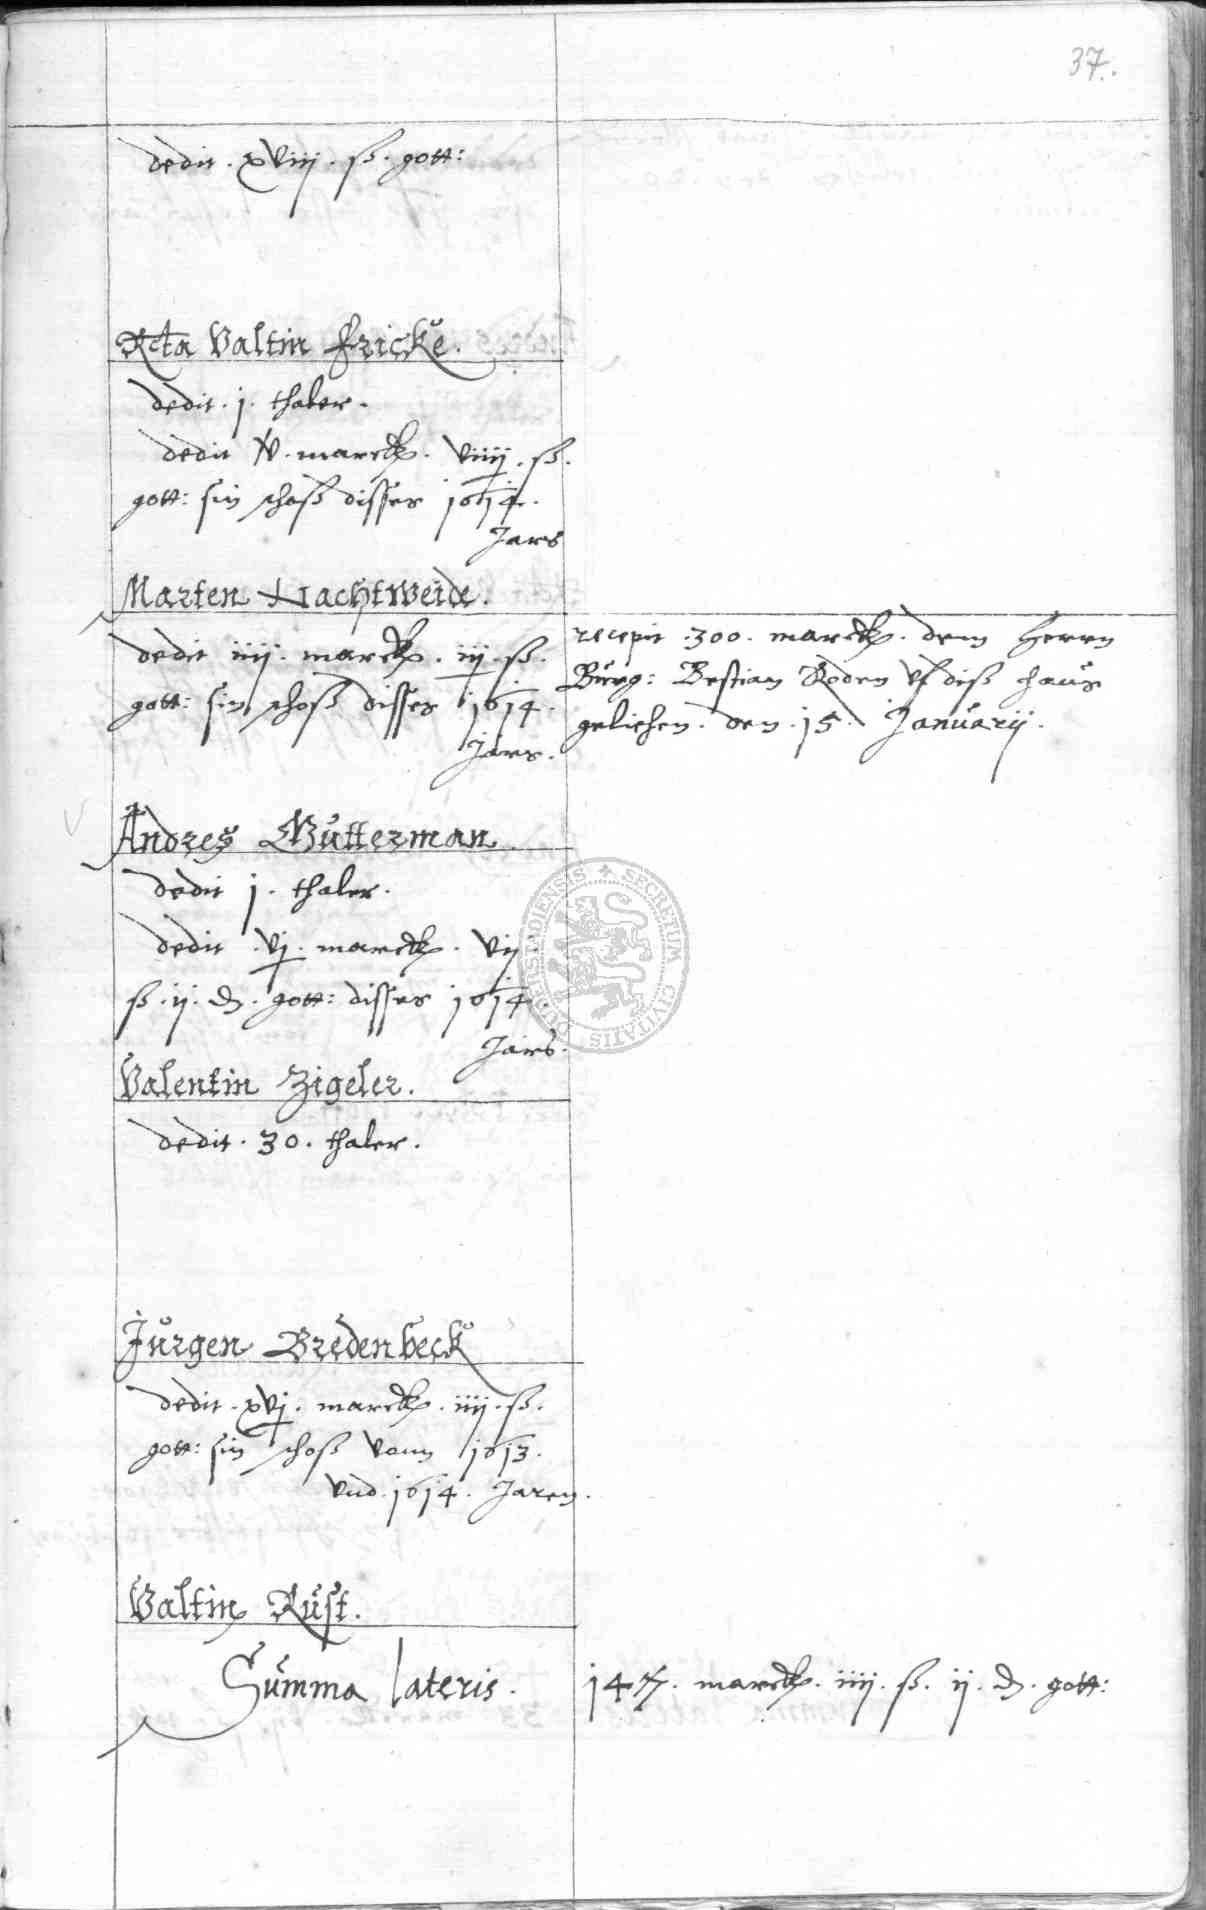 37.
dedit . xviij . ß . gott:
Rcta Valtin Fricke.
dedit . j . thaler .
dedit . marck . viiij . ß .
gott: sin schoß disses 1614 .
Jars
Marten Nachtweide .
dedit iiij . marck . iij . ß .
gott: sin schoß disses 1614 .
Jars .
recepit . 300 . marck . dem Herrn
Burg: Bestian Roden vf diß haus
geliehen . den . 15 . Januarij .
Andres Mutterman
dedit j . thaler .
dedit . vj . marck . vij
ß . ij . d . gott: disses 1614 .
Jars .
Valentin Zigeler .
dedit . 30 . thaler .
Jurgen Bredenbeck
dedit . xvj . marck . iiij . ß .
gott: sin schoß vonn 1613 .
vnd . 1614 . Jaren .
Valtin Rust .
Summa lateris . 147 . marck . iiij . ß . ij . d . gott:
SECRETUM CIVITATIS DUDERSTADIENSIS